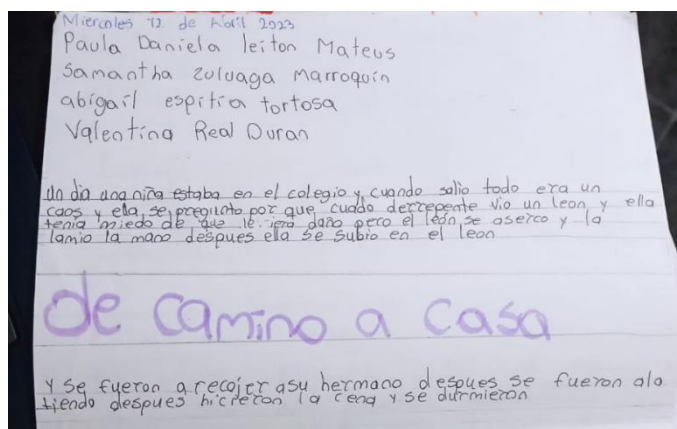 Miercoles 12 de Abril 2023
Paula Daniela leiton Mateus
Samantha zuluaga Marroquin
abigail espitia tortosa
Valentina Real Duran
Un dia una niña estaba en el colegio y cuando salio todo era un
caos y ella se pregunto por que cuado derrepente vio un leon y ella
tenia miedo de que le iera daño pero el león se aserco y la
lamio la mano despues ella se subio en el leon
de camino a casa
y se fueron a recojer asu hermano despues se fueron ala
tiendo despues hicieron la cena y se durmieron